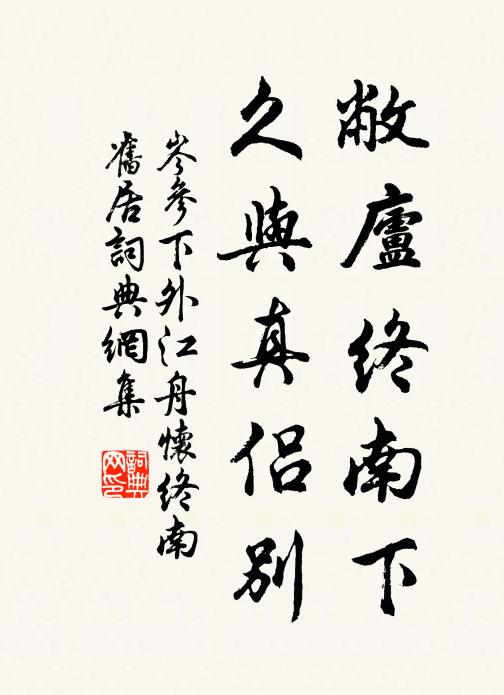 敝廬終南下
久與真侶別
岑參下外江舟懷終南
舊居詞典網集
詞典
网印